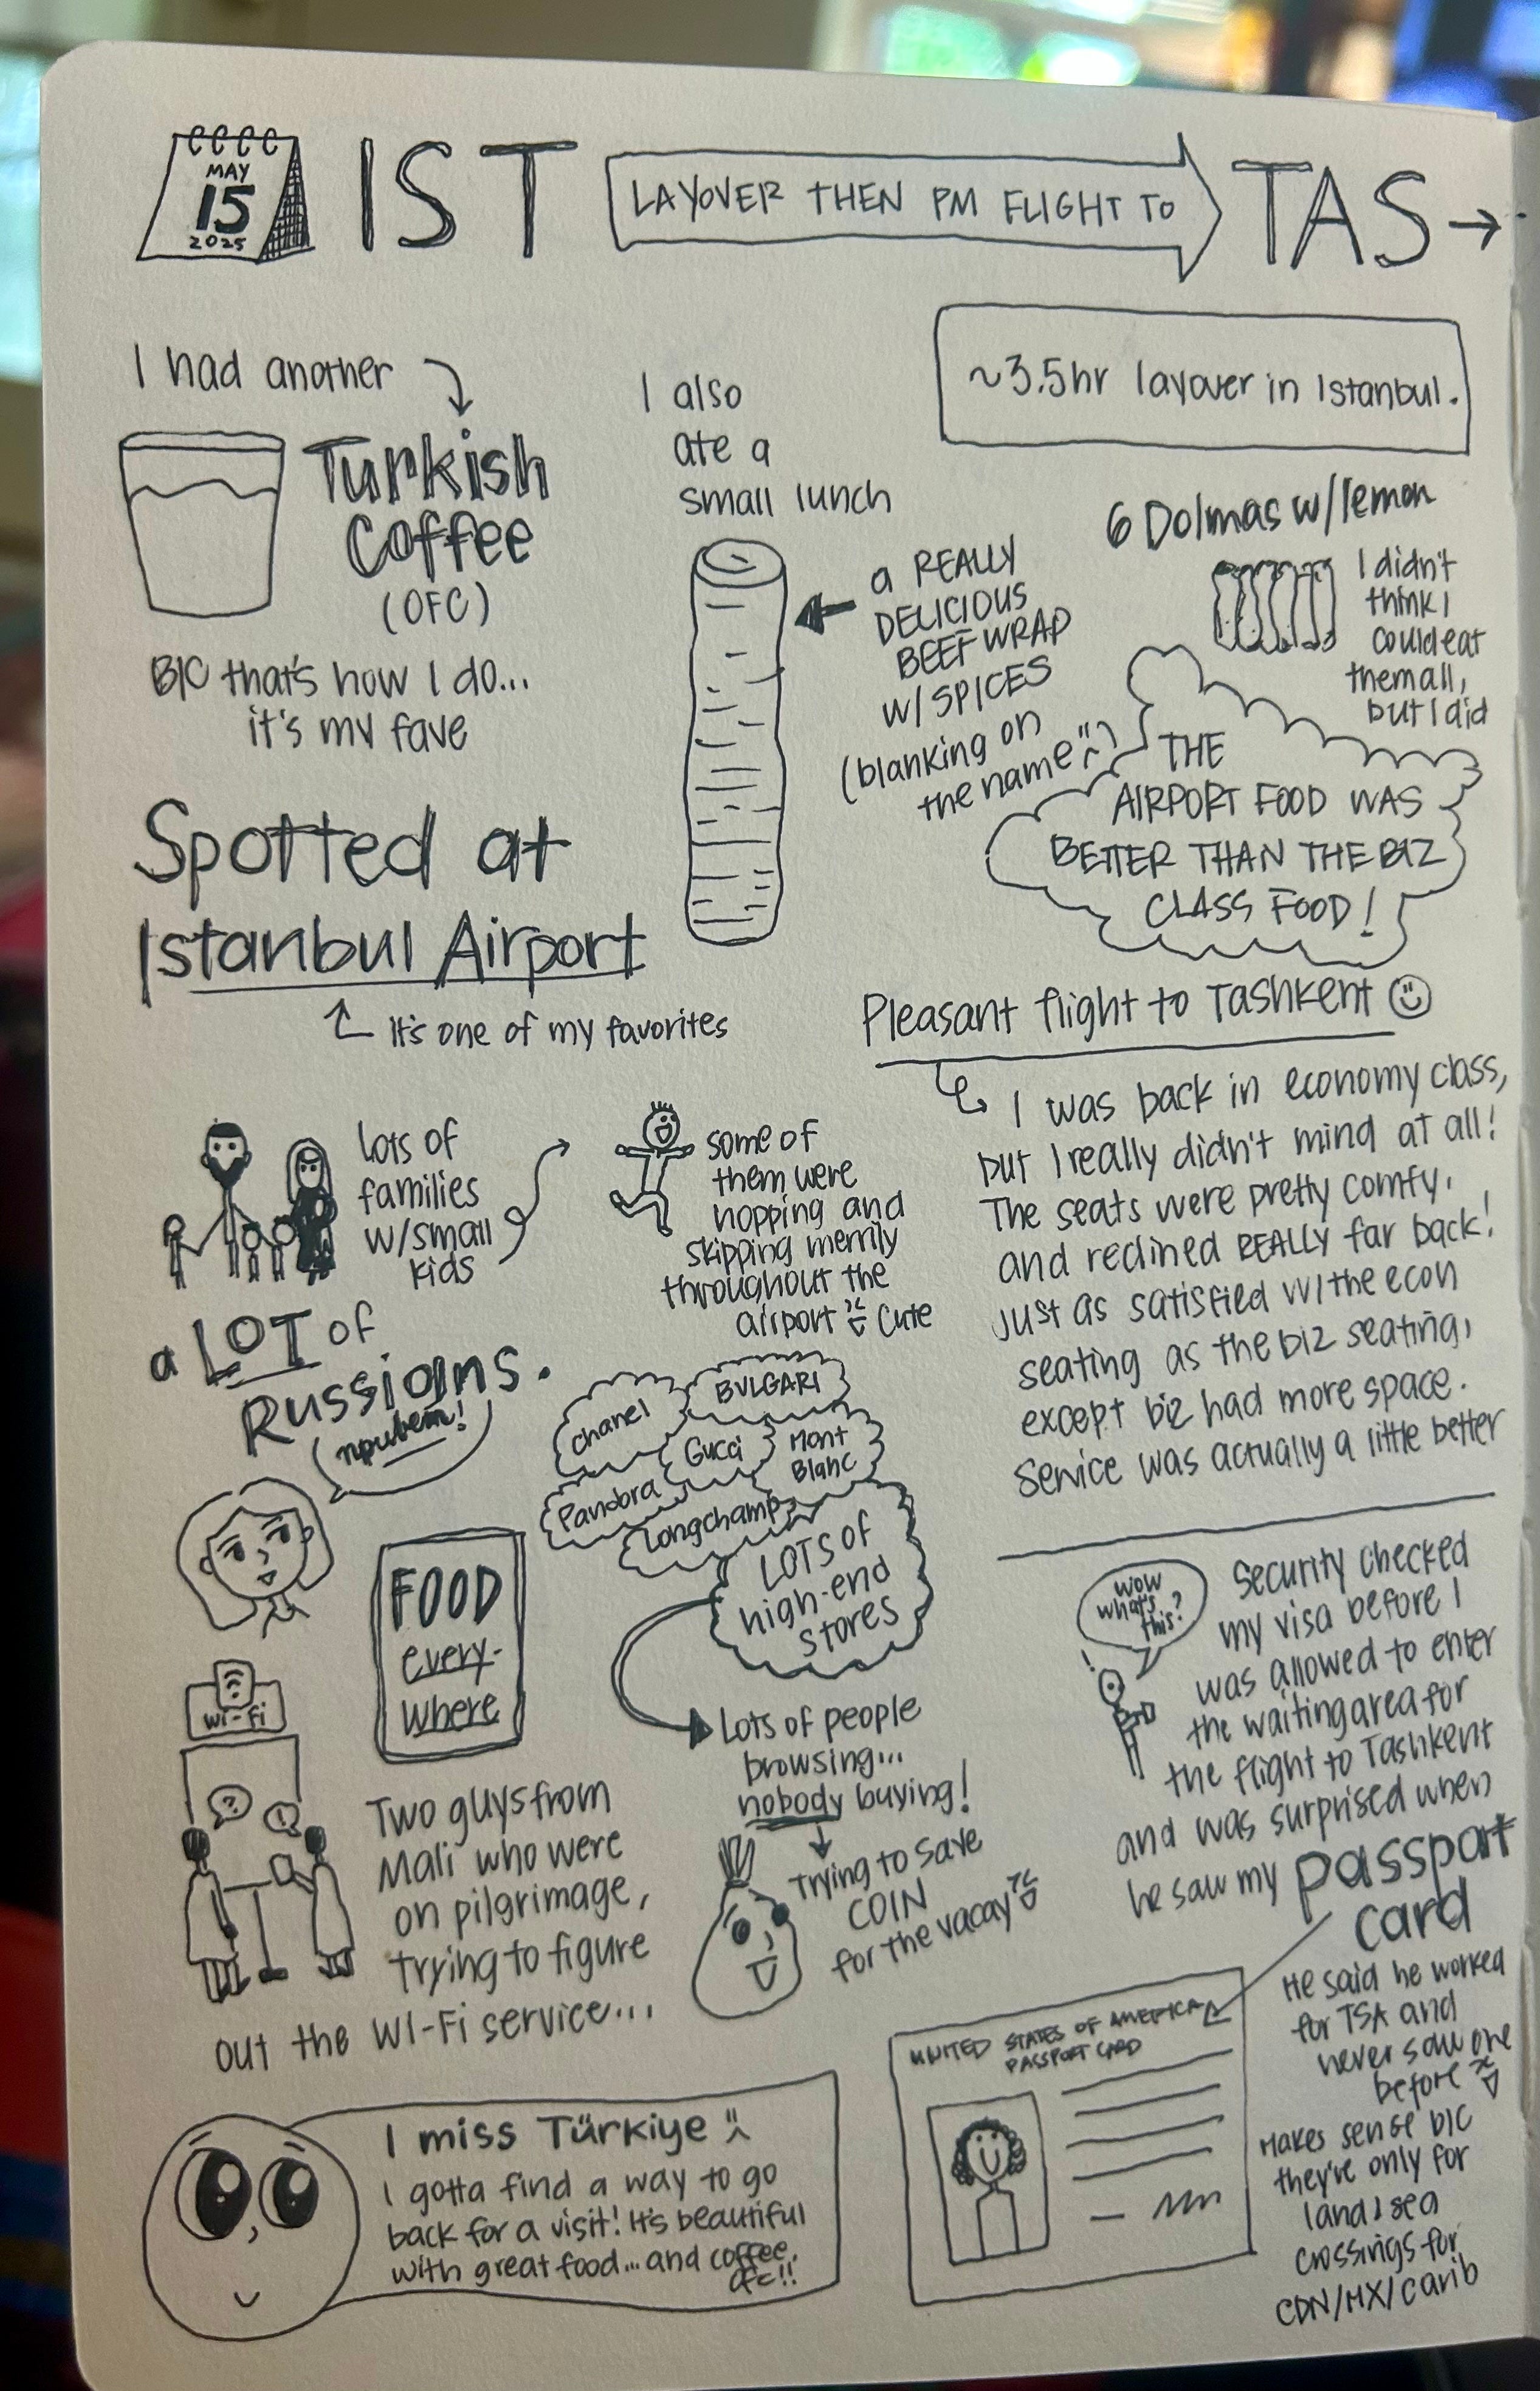 MAY
15
2025
IST
LAYOVER THEN PM FLIGHT TO
TAS →
~3.5hr layover in Istanbul.
I had another
Turkish
Coffee
(OFC)
B/C that's how I do...
it's my fave
I also
ate a
small lunch
a REALLY
DELICIOUS
BEEF WRAP
W/ SPICES
(blanking on
the name)
6 Dolmas w/lemon
I didn't
think I
could eat
them all,
but I did
THE
AIRPORT FOOD WAS
BETTER THAN THE BIZ
CLASS FOOD!
Spotted at
Istanbul Airport
It's one of my favorites
Lots of
families
w/small
kids
some of
them were
hopping and
skipping merrily
throughout the
airport Cute
a LOT of
Russians.
привет!
FOOD
every-
where
Chanel
BVLGARI
Gucci
Mont
Blanc
Pandora
Longchamp
LOTS OF
high-end
stores
Lots of people
browsing...
nobody buying!
Trying to save
COIN
for the vacay
wi-fi
?
!
Two guys from
Mali who were
on pilgrimage,
trying to figure
out the WI-Fi service...
I miss Türkiye
I gotta find a way to go
back for a visit! It's beautiful
with great food... and coffee,
ofc!!
Pleasant flight to Tashkent
I was back in economy class,
but I really didn't mind at all!
The seats were pretty comfy,
and reclined REALLY far back!
Just as satisfied w/the econ
seating as the biz seating,
except biz had more space.
Service was actually a little better
wow
what's
this?
!
Security checked
my visa before I
was allowed to enter
the waiting area for
the flight to Tashkent
and was surprised when
he saw my passport
card
UNITED STATES OF AMERICA
PASSPORT CARD
He said he worked
for TSA and
never saw one
before
Makes sense b/c
they're only for
land & sea
crossings for
CDN/MX/Carib